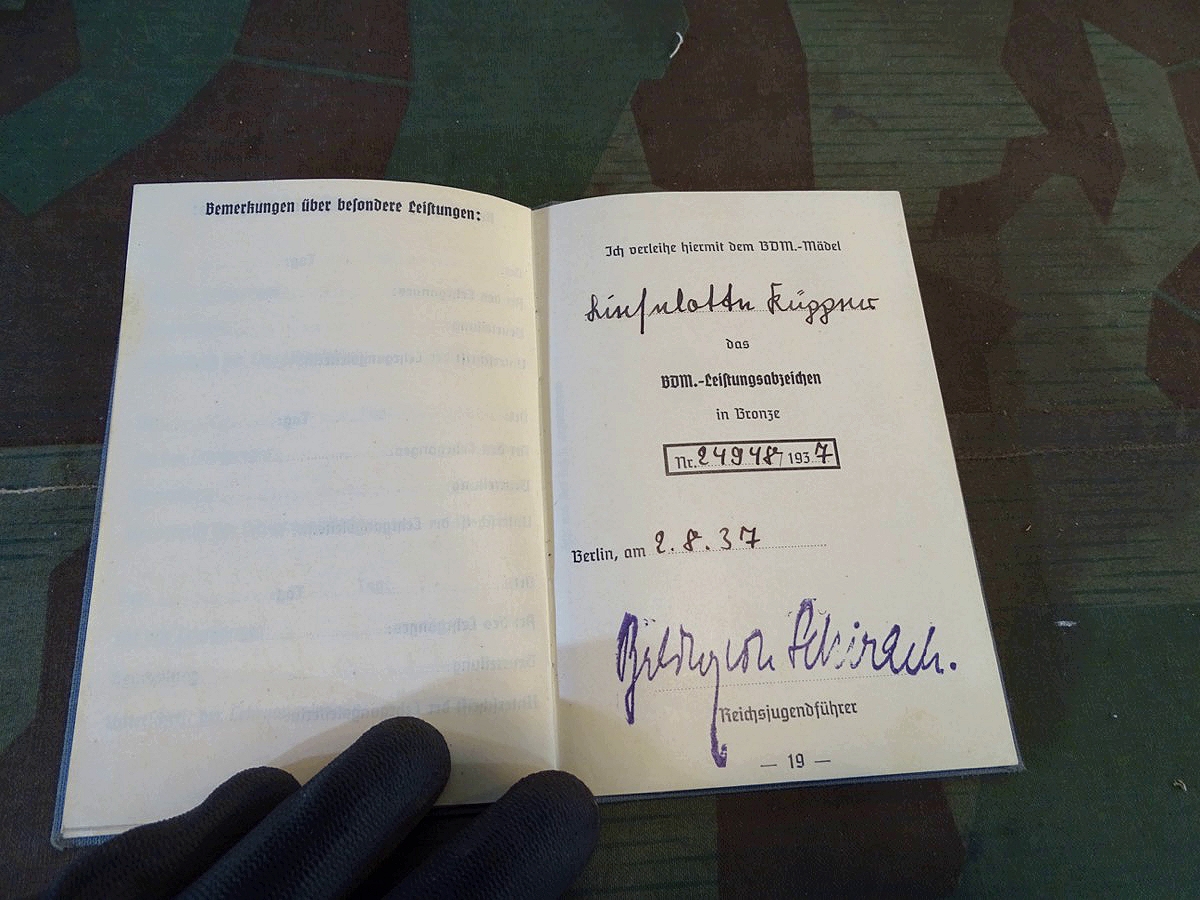 Bemerkungen über besondere Leistungen:
Ich verleihe hiermit dem BDM.-Mädel
Lieselotte Küpper
das
BDM.-Leistungsabzeichen
in Bronze
Nr. 24948/1937
Berlin, am 2.8.37
Baldur von Schirach.
Reichsjugendführer
— 19 —